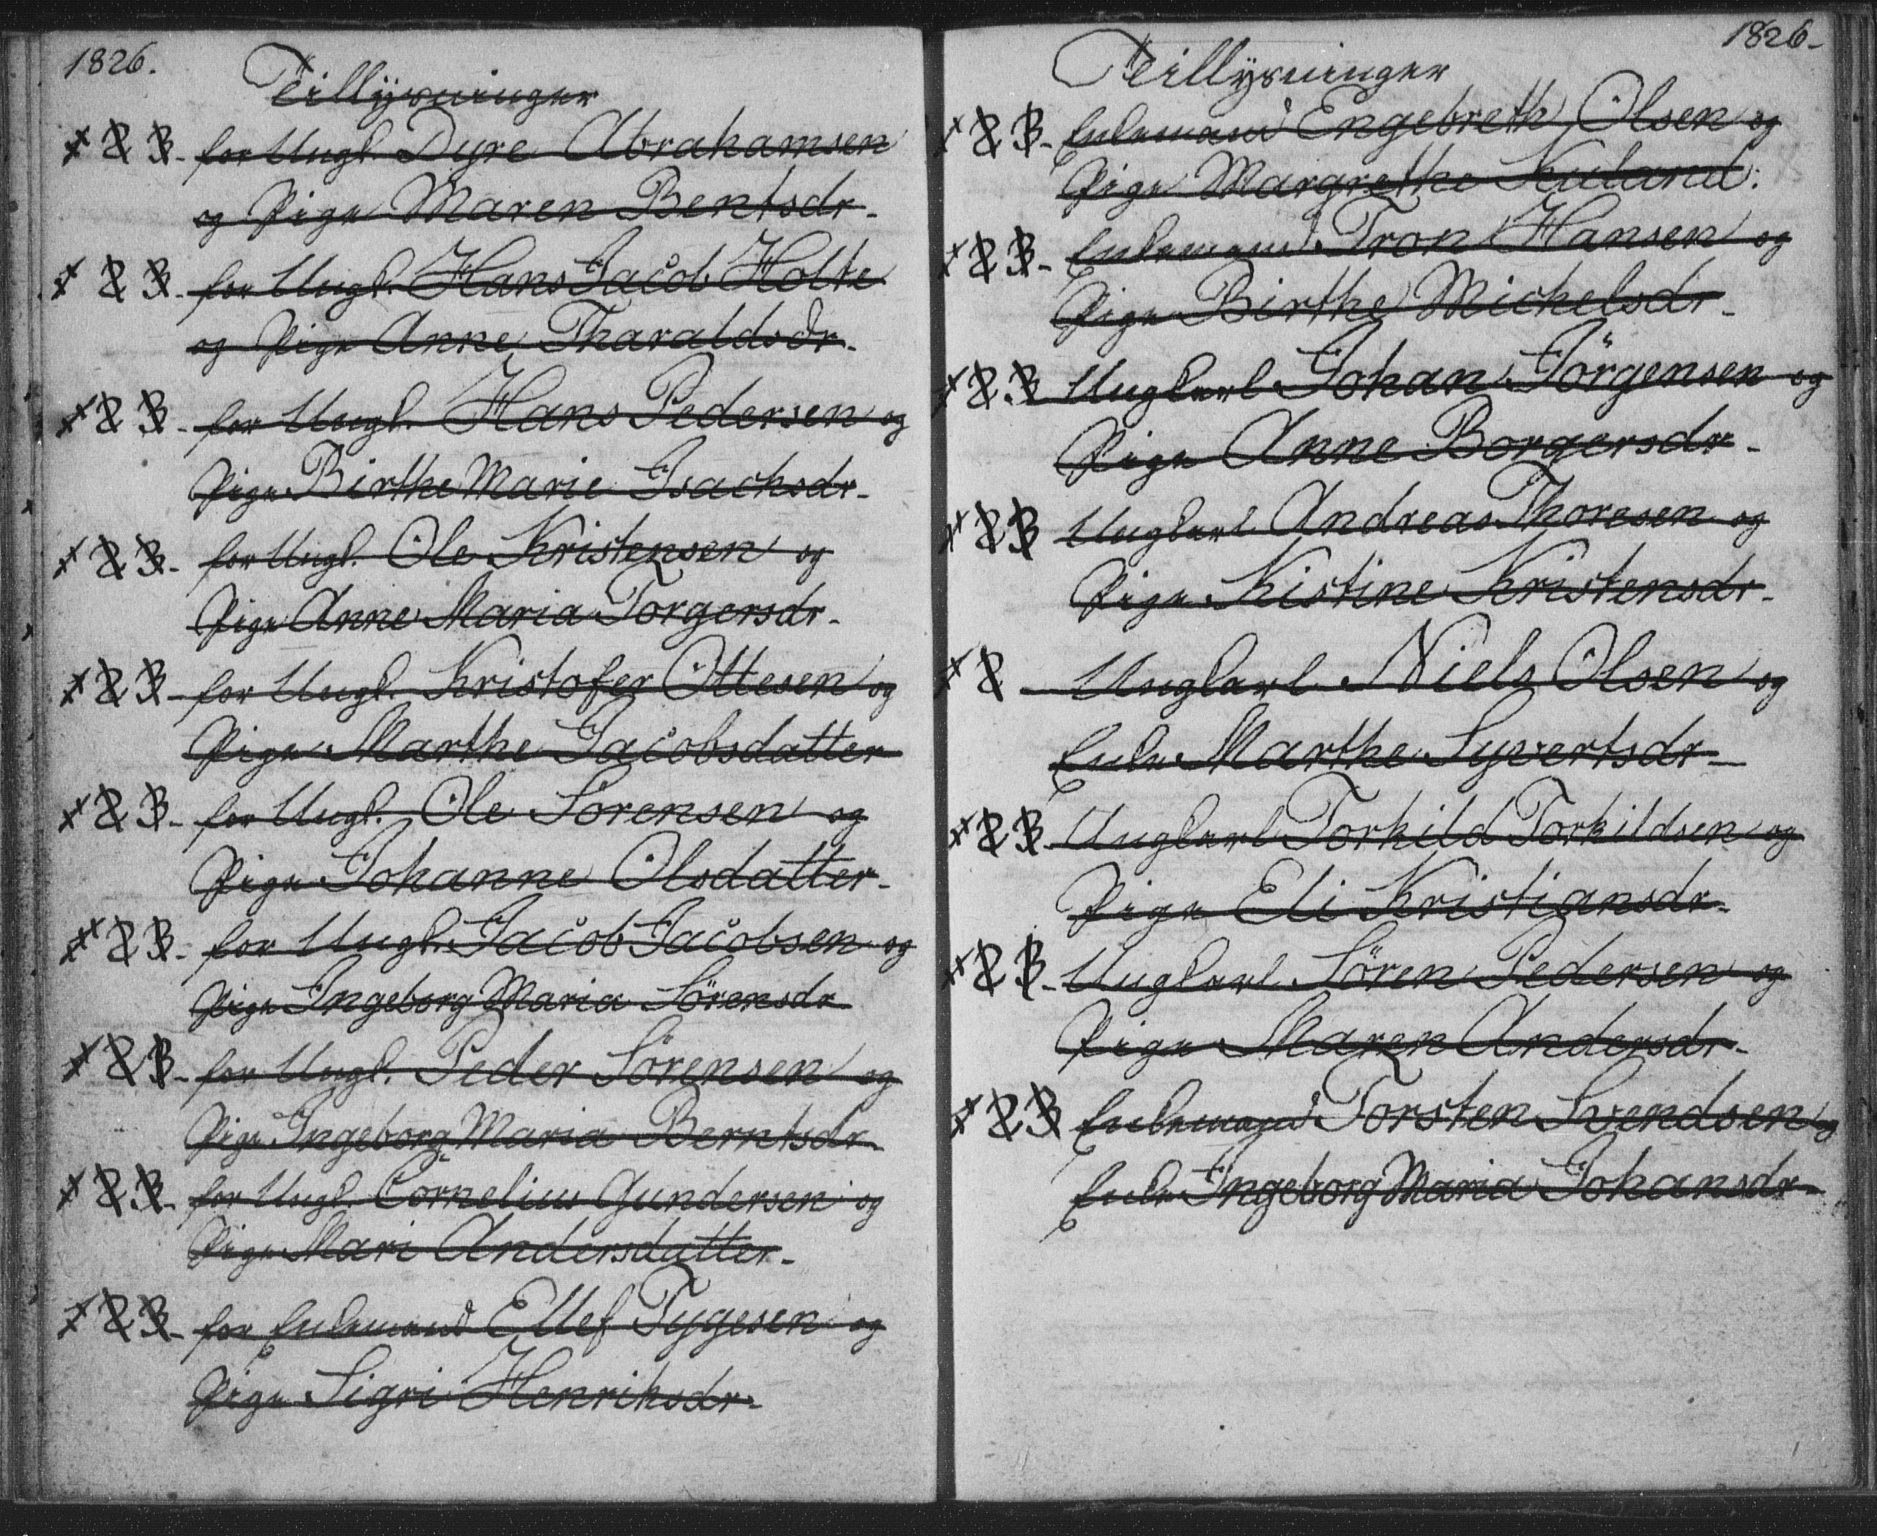 1826.
Tillysninger
for Ungk. Dyre Abrahamsen
og Pige Maren Bentsdr.
for Ungk. Hans Jacob Holte
og Pige Anne Tharaldsdr.
for Ungk. Hans Pedersen og
Pige Birthe Marie Isachsdr.
for Ungk. Ole Kristensen og
Pige Anne Maria Torgersdr.
for Ungk. Kristofer Ottesen og
Pige Marthe Jacobsdatter
for Ungk. Ole Sörensen og
Pige Johanne Olsdatter.
for Ungk. Jacob Jacobsen og
Pige Ingeborg Maria Sörensdr
for Ungk. Peder Sörensen og
Pige Ingeborg Maria Berntsdr.
for Ungk. Cornelius Gundersen og
Pige Mari Andersdatter.
for Enkemand Ellef Tygesen og
Pige Sigri Henriksdr.
1826.
Tillysninger
Enkemand Engebreth Olsen og
Pige Margrethe Kuland.
Enkemand Tron Hansen og
Pige Birthe Mickelsdr.
Ungkarl Johan Jörgensen og
Pige Anne Borgersdr.
Ungkarl Andreas Thoresen og
Pige Kistine Kristensdr.
Ungkarl Niels Olsen og
Enke Marthe Syvertsdr.
Ungkarl Torkild Torkildsen og
Pige Eli Kristiansdr.
Ungkarl Sören Pedersen og
Pige Maren Andersdr.
Enkemand Torsten Svendsen og
Enke Ingeborg Maria Johansdr.